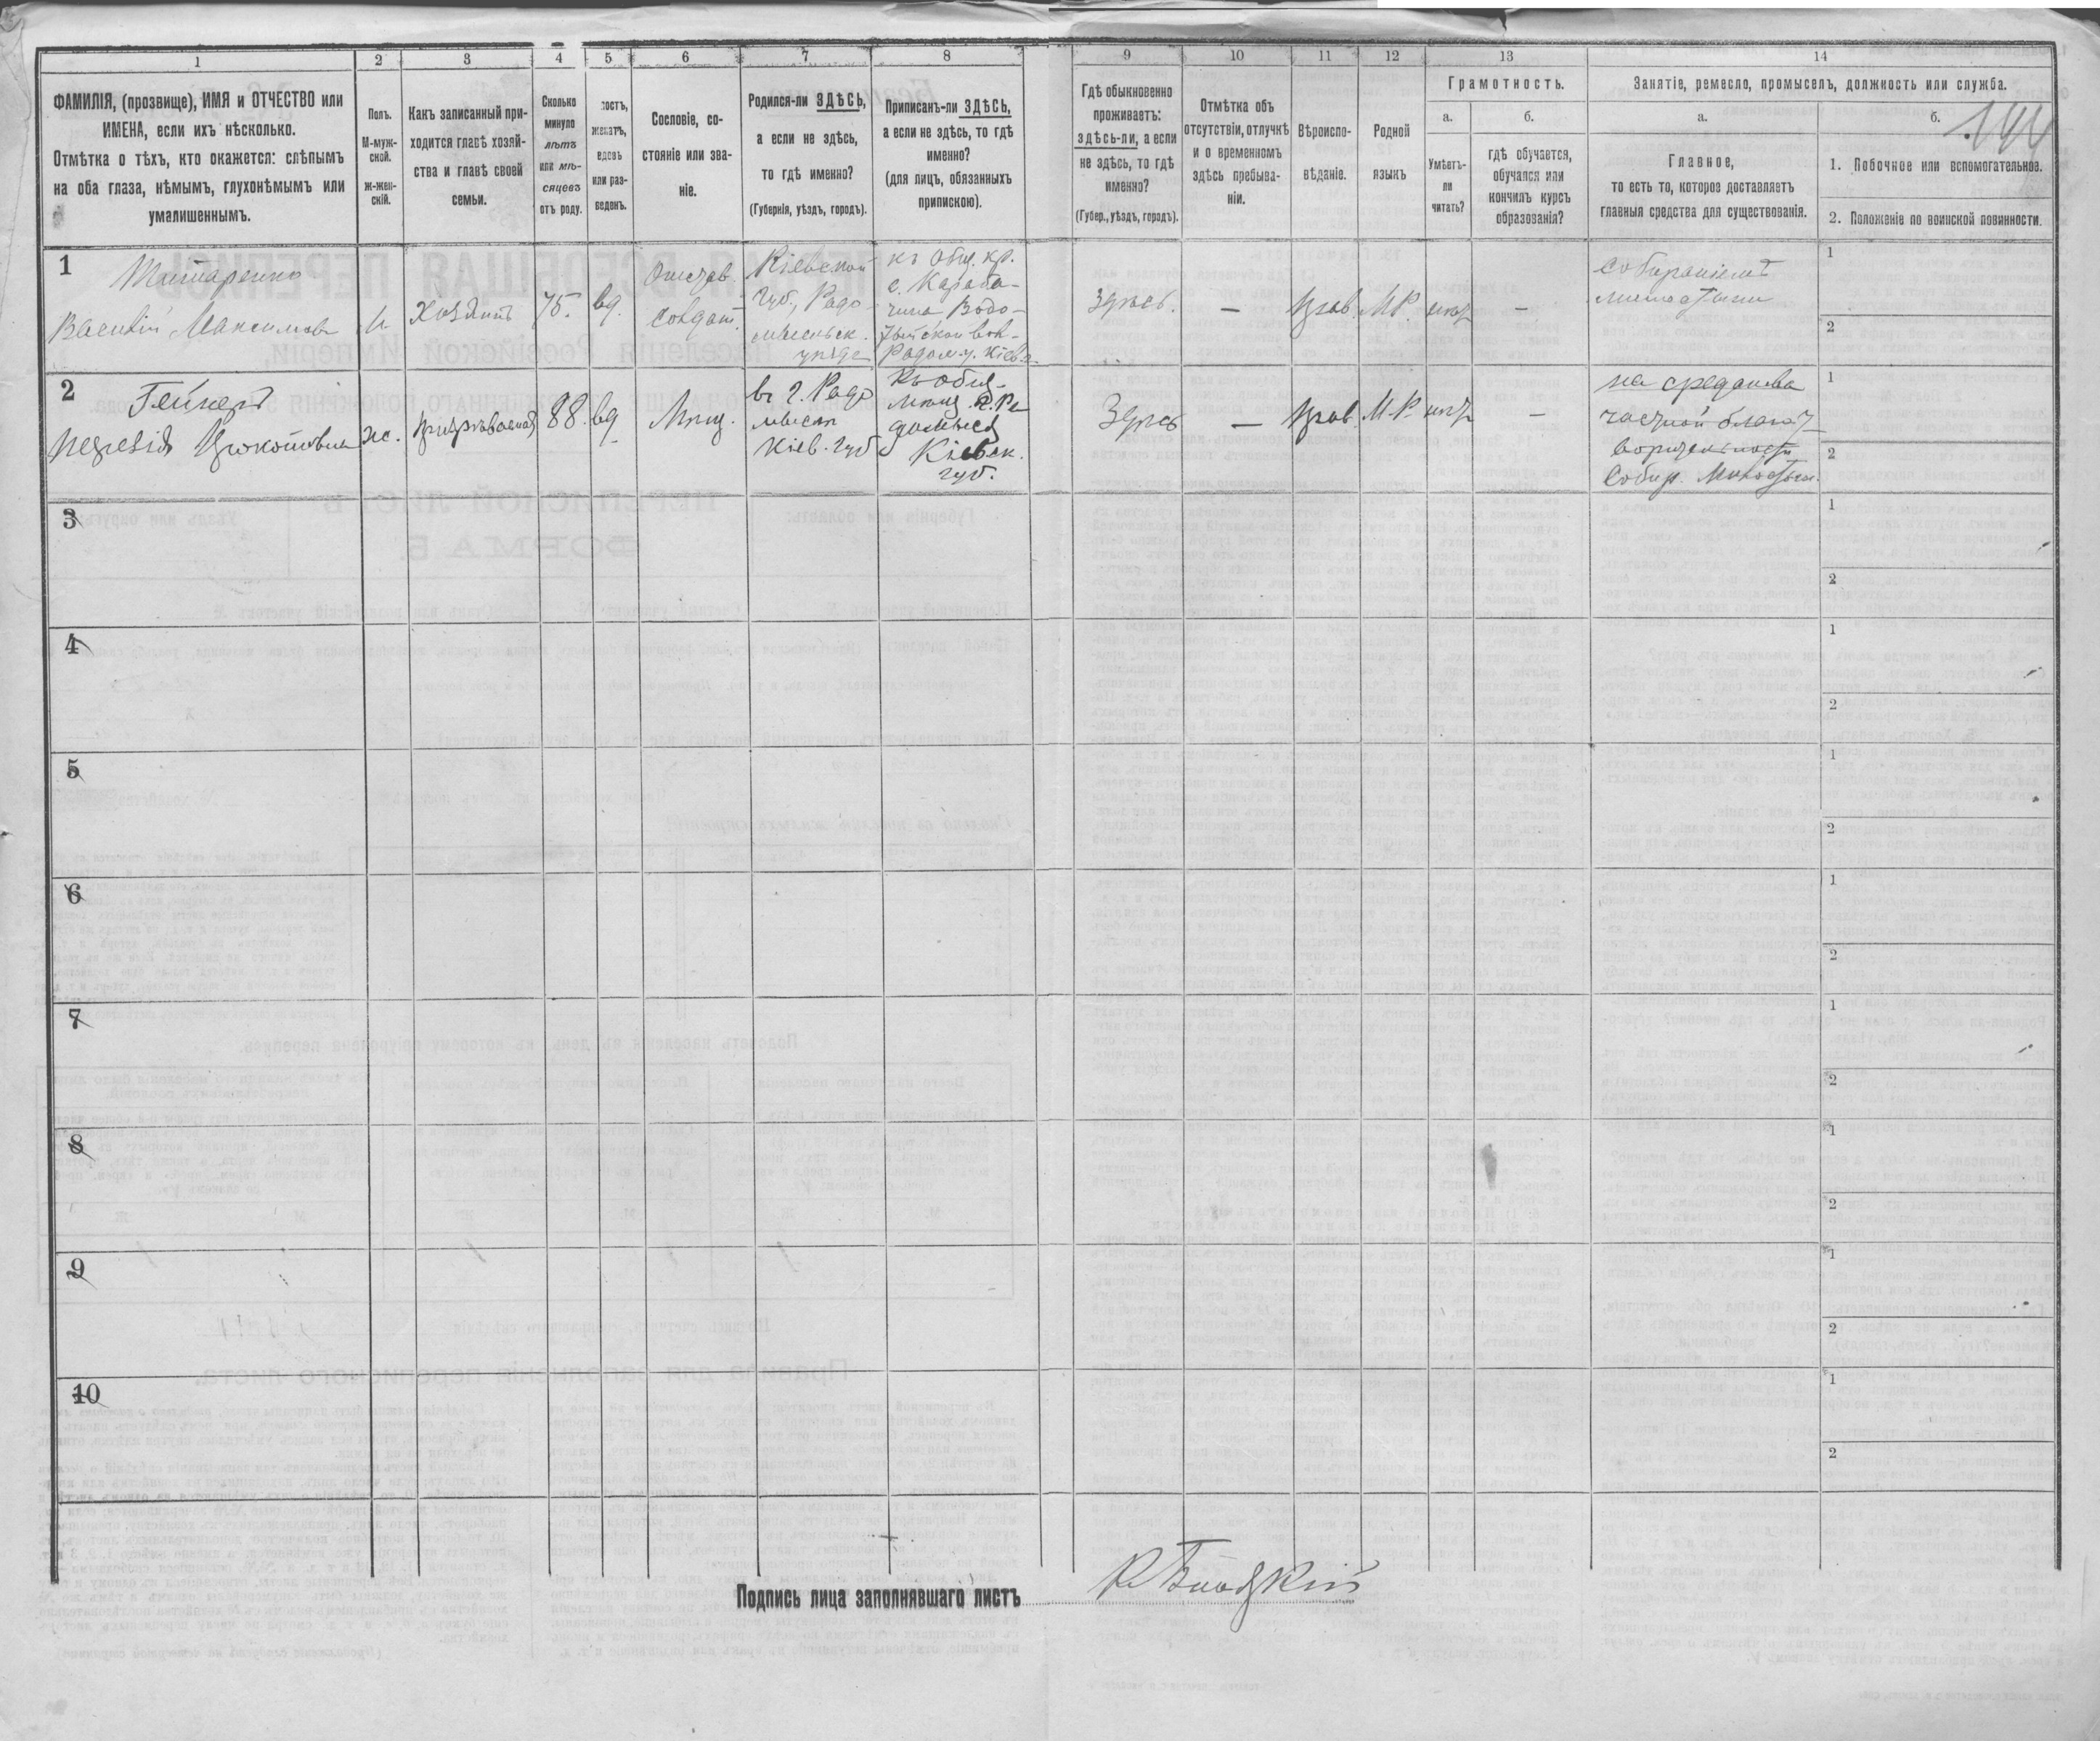 1
2
3
4
5
6
7
8
9
10
11
12
13
14
ФАМИЛІЯ, (прозвище), ИМЯ и ОТЧЕСТВО или
ИМЕНА, если ихъ нѣсколько.
Отмѣтка о тѣхъ, кто окажется: слѣпымъ
на оба глаза, нѣмымъ, глухонѣмымъ или
умалишеннымъ.
Полъ.
М-муж-
ской.
ж-жен-
скій.
Какъ записанный при-
ходится главѣ хозяй-
ства и главѣ своей
семьи.
Сколько
минуло
лѣтъ
или мѣ-
сяцевъ
отъ роду.
лостъ,
женатъ,
вдовъ
или раз-
веденъ.
Сословіе, со-
стояніе или зва-
ніе.
Родился-ли ЗДѢСЬ,
а если не здѣсь,
то гдѣ именно?
(Губернія, уѣздъ, городъ).
Приписанъ-ли ЗДѢСЬ,
а если не здѣсь, то гдѣ
именно?
(для лицъ, обязанныхъ
припискою).
Гдѣ обыкновенно
проживаетъ:
здѣсь-ли, а если
не здѣсь, то гдѣ
именно?
(Губер., уѣздъ, городъ).
Отмѣтка объ
отсутствіи, отлучкѣ
и о временномъ
здѣсь пребыва-
ніи.
Вѣроиспо-
вѣданіе.
Родной
языкъ
Грамотность.
а.
Умѣетъ-
ли
читать?
б.
гдѣ обучается,
обучался или
кончилъ курсъ
образованія?
Занятіе, ремесло, промыселъ, должность или служба.
а.
Главное,
то есть то, которое доставляетъ
главныя средства для существованія.
б.
1. Побочное или вспомогательное.
2. Положеніе по воинской повинности.
1
Титаренко
Максимовъ
Хозяинъ
75.
вд.
солдат.
Кіевской
губ., Радо-
мысльск.
уѣзде
къ общ. кр.
с. Караба-
чина Водо-
Радом. у. Кіевс.
Здѣсь.
—
Прав.
М.Р.
нѣт
—
собираніемъ
милостыни
1
2
2
ж.
призрѣваемая
88.
вд
Мѣщ.
въ г. Радо
мыслѣ
Кіев. губ
Къ общ.
мѣщ. г. Ра
домысл
Кіевск.
губ.
Здѣсь
—
Прав.
М.Р.
нѣт
—
на средства
частной благот
ворительности
Собир. Милостыни.
1
2
3
1
2
4
1
2
5
1
2
6
1
2
7
1
2
8
1
2
9
1
2
10
1
2
Подпись лица заполнявшаго листъ